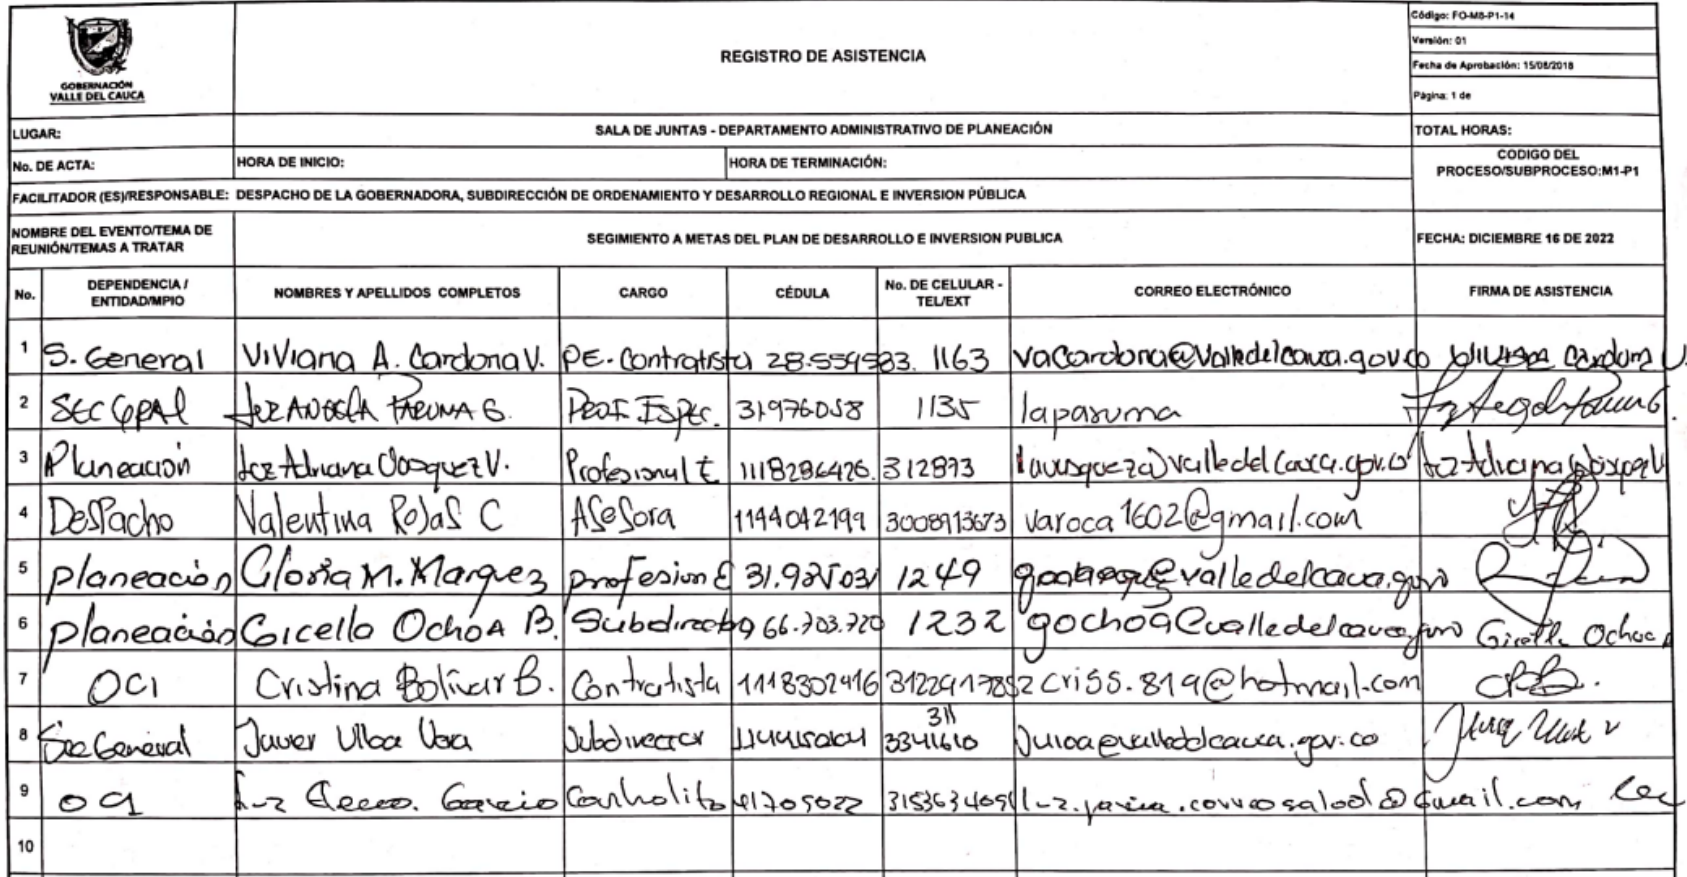 GOBERNACIÓN
VALLE DEL CAUCA
REGISTRO DE ASISTENCIA
Código: FO-M8-P1-14
Versión: 01
Fecha de Aprobación: 15/08/2018
Página: 1 de
LUGAR: SALA DE JUNTAS - DEPARTAMENTO ADMINISTRATIVO DE PLANEACIÓN TOTAL HORAS:
No. DE ACTA: HORA DE INICIO: HORA DE TERMINACIÓN:
CODIGO DEL
PROCESO/SUBPROCESO:M1-P1
FACILITADOR (ES)/RESPONSABLE: DESPACHO DE LA GOBERNADORA, SUBDIRECCIÓN DE ORDENAMIENTO Y DESARROLLO REGIONAL E INVERSION PÚBLICA
NOMBRE DEL EVENTO/TEMA DE
REUNIÓN/TEMAS A TRATAR
SEGIMIENTO A METAS DEL PLAN DE DESARROLLO E INVERSION PUBLICA
FECHA: DICIEMBRE 16 DE 2022
No. DEPENDENCIA / ENTIDAD/MPIO NOMBRES Y APELLIDOS COMPLETOS CARGO CÉDULA No. DE CELULAR - TEL/EXT CORREO ELECTRÓNICO FIRMA DE ASISTENCIA
1 S. General Viviana A. Cardona V. PE. Contratista 28.559583. 1163 vacardona@valledelcauca.gov.co Viviana Cardona V.
2 Sec Gral Prof. Espec. 31976058 1135 lapasuma
3 Planeación Luz Adriana Vasquez V. Profesional E 1118286426. 312873 lavasqueza@valledelcauca.gov.co Luz Adriana
4 Despacho Valentina Rojas C Asesora 1144042199 3008913673 varoca1602@gmail.com
5 planeación Gloria M. Marquez profesion E 1249 @valledelcauca.gov
6 planeación Gicella Ochoa B. Subdirectora 66.703.720 1232 gochoa@valledelcauca.gov Gicella Ochoa
7 OCI Cristina Bolívar B. Contratista 1118302416 3122417852 criss.819@hotmail.com CBB.
8 Sec General Javier Ulloa Vera Subdirector 311 3341610 @valledelcauca.gov.co
9 OCI Luz Garcia Contratista 41705022 @Gmail.com
10